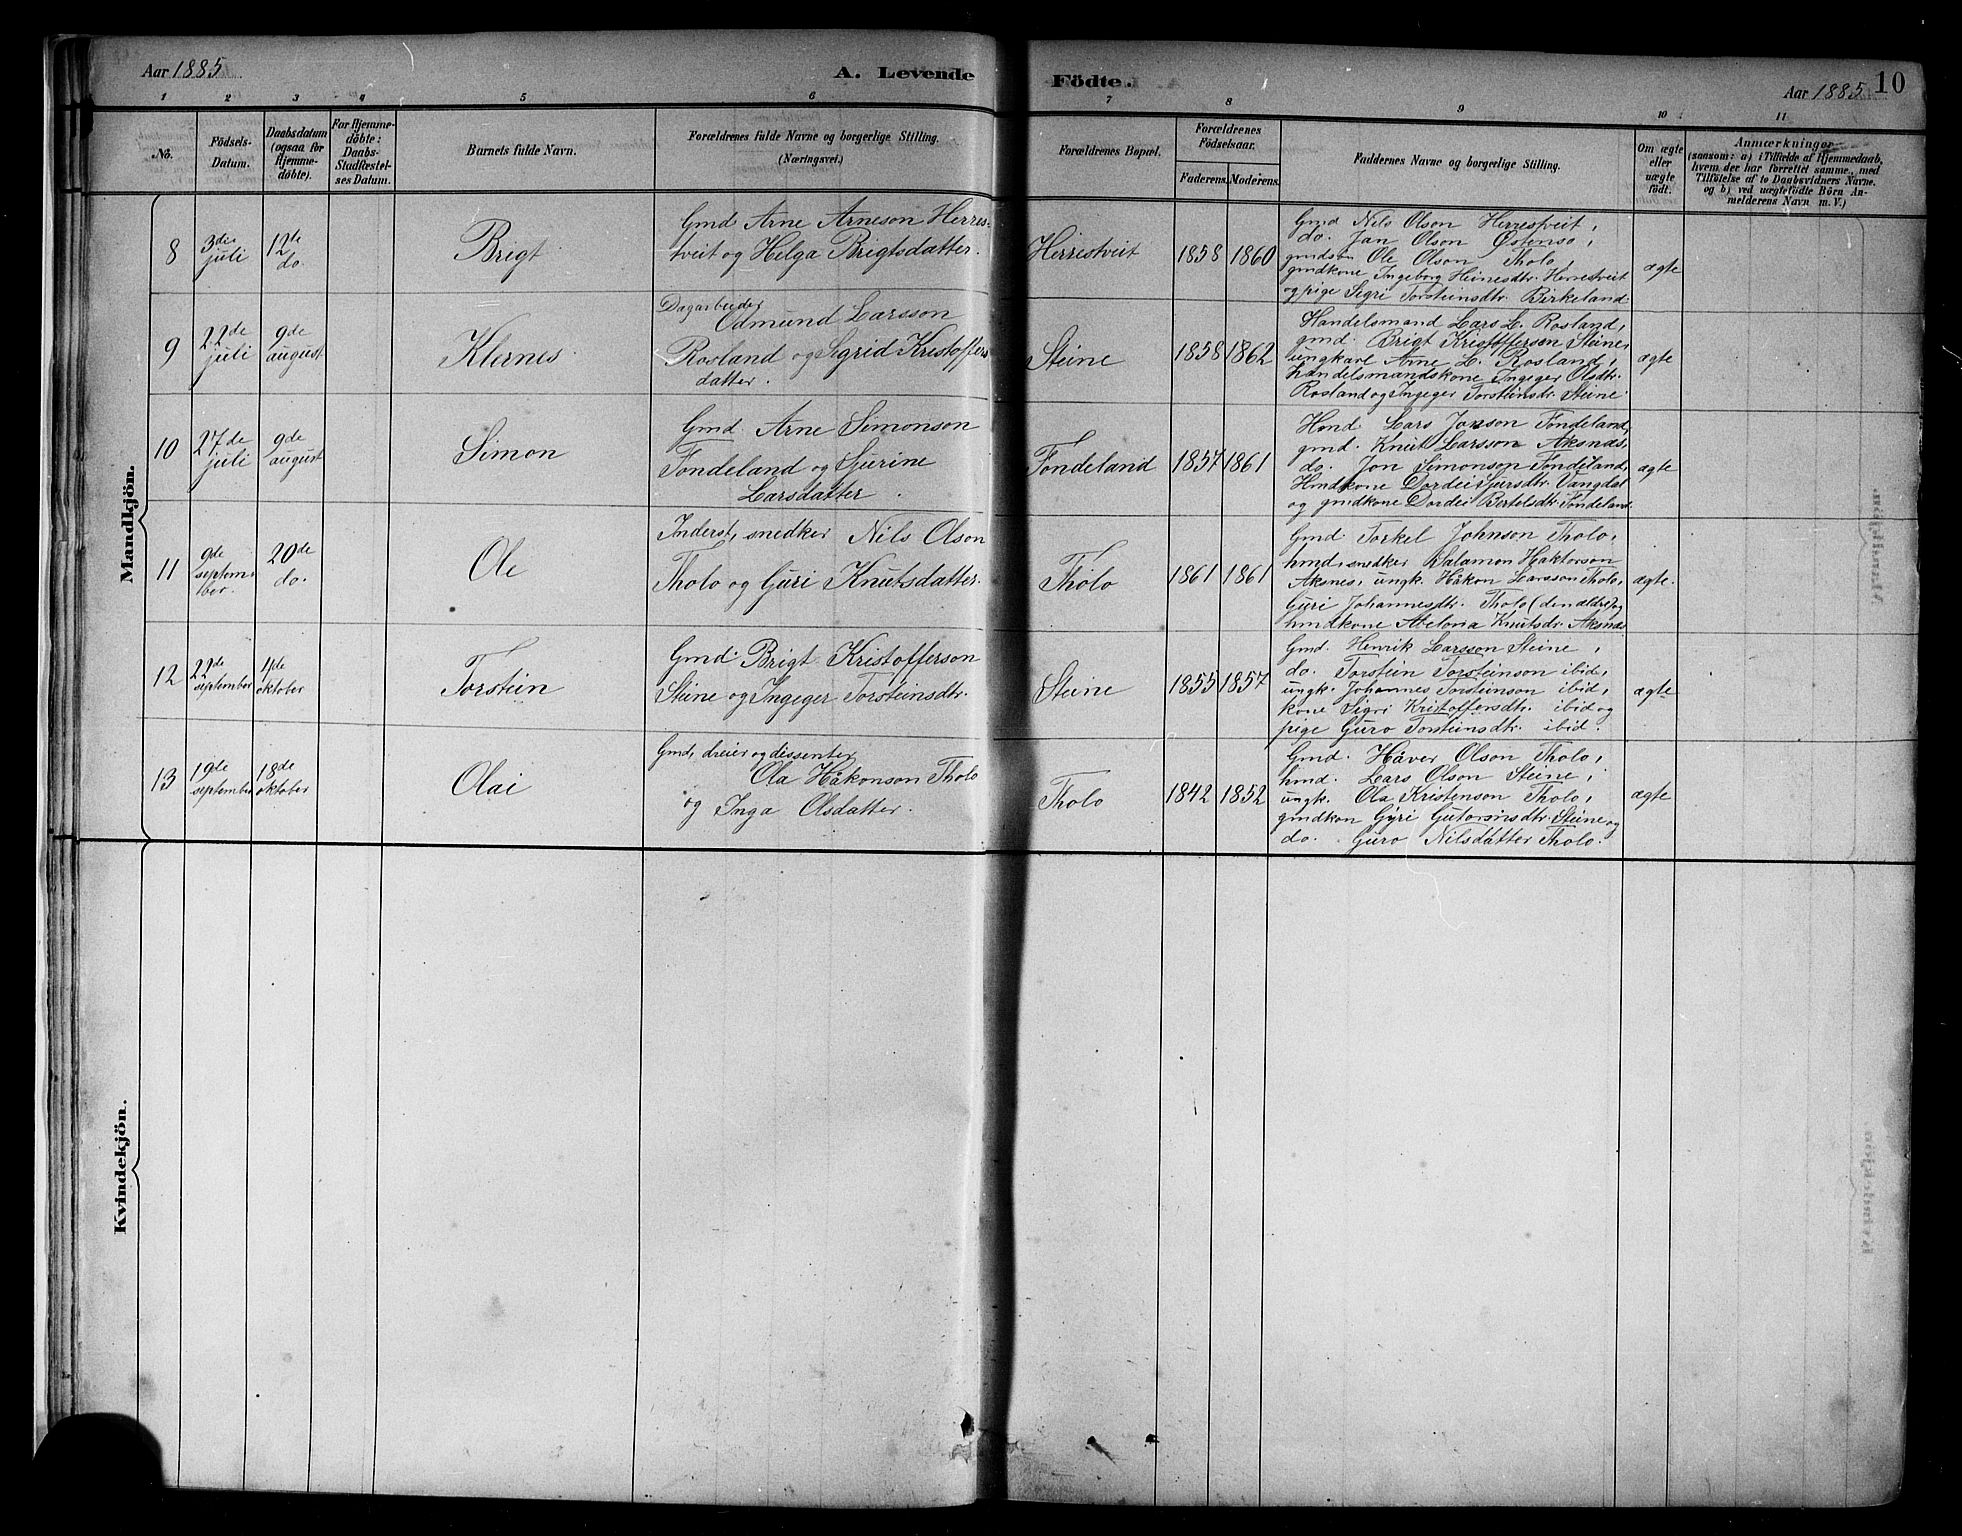 Aar 1885
A. Levende
Födte.
Aar 1885
10
1 2 3 4 5 6 7 8 9 10 11
No.
Födsels-
Datum.
Daabsdatum
(ogsaa for
Hjemme-
döbte).
For Hjemme-
döbte:
Daabs-
Stadfæstel-
ses Datum.
Barnets fulde Navn.
Forældrenes fulde Navne og borgerlige Stilling.
(Næringsvei.)
Forældrenes Bopæl.
Forældrenes
Födselsaar.
Faderens. Moderens.
Faddernes Navne og borgerlige Stilling.
Om ægte
eller
uægte
født.
Anmærkninger
(saasom: a) i Tilfælde af Hjemmedaab,
hvem der har forrettet samme, med
Tilföielse af to Daabsvidners Navne.
og b) ved uægtefödte Börn An-
melderens Navn m. V.)
Mandkjön.
8
3die
juli
12te
do.
Brigt
Gmd Arne Arneson Herres-
tveit og Helga Brigtsdatter.
Herrestveit
1858 1860
Gmd Nils Olson Herrestveit,
do. Jan Olson Østensø,
gmdsøn Ole Olson Tholo,
gmdkone Ingeborg Heinesdtr. Herrestveit
og pige Segri Torsteinsdtr. Birkeland.
ægte
9
22de
juli
9de
august
Klernes
Dagarbeider
Odmund Larsson
Rosland og Segrid Krestoffers
datter.
Steine
1858 1862
Handelsmand Lars L. Rosland,
gmd. Brigt Kristofferson Steine,
ungkarl Arne L. Rosland,
handelsmandskone Ingeger Olsdtr.
Rosland og Ingeger Torsteinsdtr. Steine.
ægte
10
27de
juli
9de
august
Simon
Gmd. Arne Simonson
Fondeland og Sjurine
Larsdatter.
Fondeland
1857 1861
Hmd. Lars Jonson Fondeland,
gmd. Knut Larsson Aksnæs,
do. Jon Simonson Fondeland,
Hmdkone Dordei Sjursdtr. Vangdal
og gmdkone Dordei Bertelsdtr. Fondeland.
ægte
11
9de
septem-
ber.
20de
do.
Ole
Inderst, snedker Nils Olson
Tholo og Guri Knutsdatter.
Tholo
1861 1861
Gmd Torkel Johnson Tholo,
hmd, snedker Salamon Haktorson
Aksnes, ungk. Håkon Larsson Tholo,
Guri Johannesdtr. Tholo (den ældre) og
hmdkone Abeloria Knutsdtr. Aksnæs
ægte.
12
22de
september
4de
oktober
Torstein
Gmd. Brigt Kristofferson
Steine og Ingeger Torsteinsdtr.
Steine
1855 1857
Gmd. Henrik Larsson Steine,
do. Torstein Torsteinson ibid,
ungk. Johannes Torsteinson ibid,
kone Sigri Kristoffersdtr. ibid og
pige Guro Torsteinsdtr. ibid.
ægte
13
19de
september
18de
oktober
Olai
Gmd, dreier og dissenter
Ola Håkonson Tholo
og Inga Olsdatter.
Tholo
1842 1852
Gmd. Håver Olson Tholo,
hmd. Lars Olson Steine,
ungk. Ola Kristenson Tholo,
gmdkon Gyri Gutormsdtr. Steine og
do. Guro Nilsdatter Tholo.
ægte
Kvindekjön.